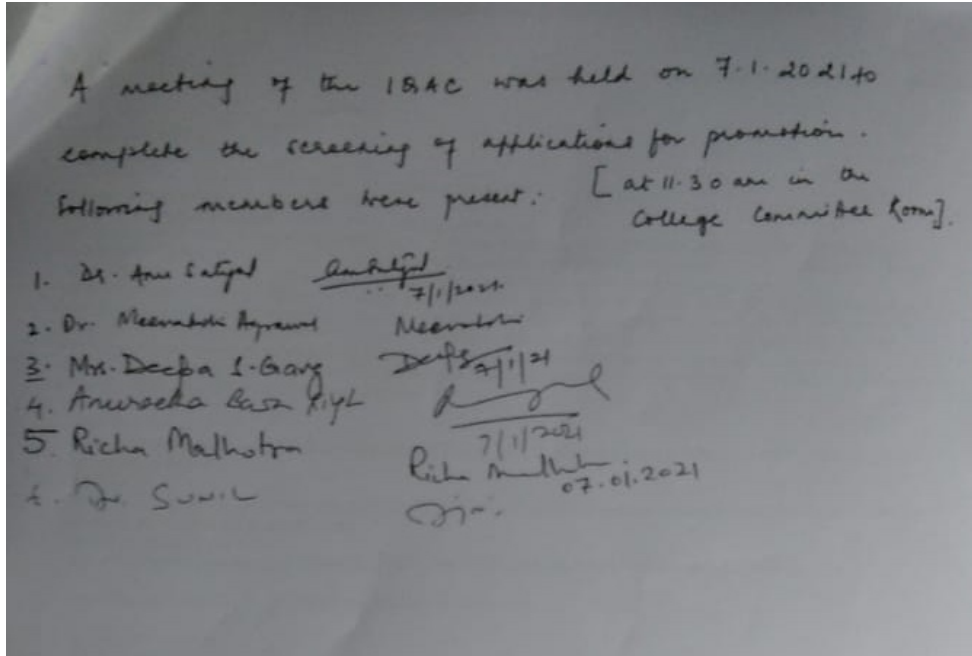 A meeting of the IQAC was held on 7.1.2021 to
complete the screening of applications for promotion.
Following members were present: [at 11.30 am in the
College Committee Room].
1. Dr. Anu Satyal
7/1/2021.
2. Dr. Meenakshi Agrawal Meenakshi
3. Mrs. Deepa S. Garg Deepa
7/1/21
4. Anuradha
7/1/2021
5. Richa Malhotra Richa Malhotra
07.01.2021
Dr. Sunil